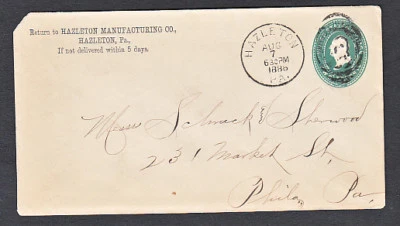 Return to HAZLETON MANUFACTURING CO.,
HAZLETON, Pa.,
If not delivered within 5 days.
HAZLETON
AUG
7
630PM
1886
PA.
Messrs Schrack & Sherwood
231 Market St.
Phila, Pa.